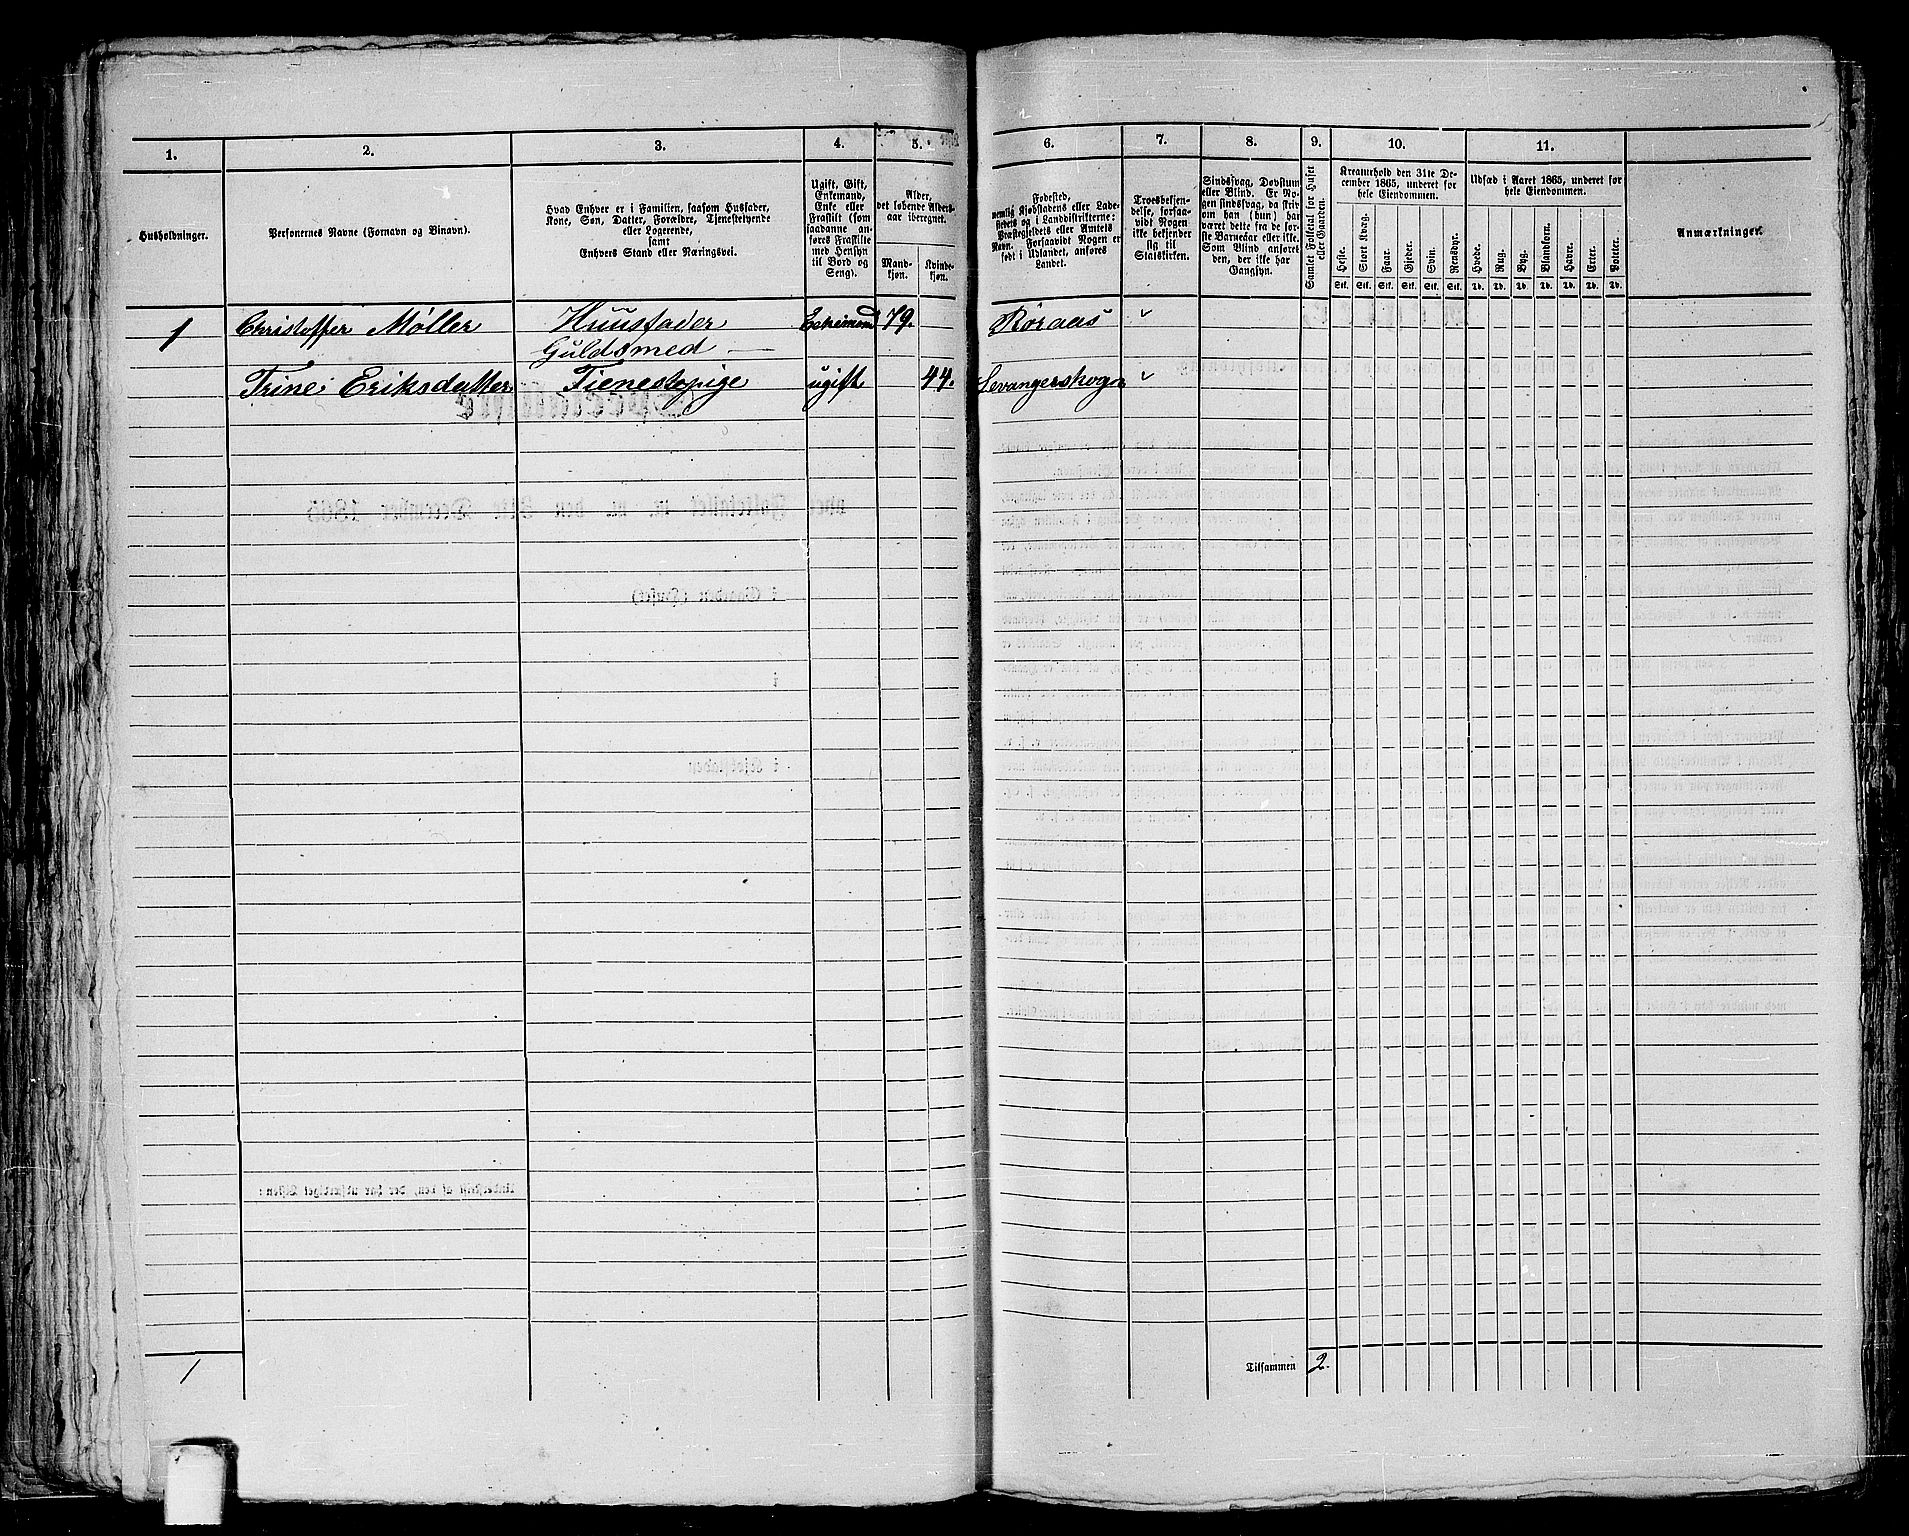 1. 2. 3. 4. 5. 6. 7. 8. 9. 10. 11.
Husholdninger.
Personernes Navne (Fornavn og Binavn).
Hvad Enhver er i Familien, saasom Husfader,
Kone, Søn, Datter, Forældre, Tjenestetyende
eller Logerende,
samt
Enhvers Stand eller Næringsvei.
Ugift, Gift,
Enkemand,
Enke eller
Fraskilt (som
saadanne an-
føres Fraskilte
med Hensyn
til Bord og
Seng).
Alder,
det løbende Alders-
aar iberegnet.
Mand-
kjøn.
Kvinde-
kjøn.
Fødested,
nemlig Kjøbstadens eller Lade-
stedets og i Landdistrikterne:
Præstegjeldets eller Amtets
Navn. Forsaavidt Nogen er
født i Udlandet, anføres
Landet.
Troesbekjen-
delse, forsaa-
vidt Nogen
ikke bekjender
sig til
Statskirken.
Sindssvag, Døvstum
eller Blind. Er No-
gen sindssvag, da skriv
om han (hun) har
været dette fra de før-
ste Barneaar eller ikke.
Som Blind anføres
den, der ikke har
Gangsyn.
Samlet Folketal for Huset
eller Gaarden.
Kreaturhold den 31te De-
cember 1865, underet for
hele Eiendommen.
Heste.
Stort Kvæg.
Faar.
Gjeder.
Svin.
Rensdyr.
Stk. Stk. Stk. Stk. Stk. Stk.
Udsæd i Aaret 1865, underet for
hele Eiendommen.
Hvede.
Rug.
Byg.
Blandkorn.
Havre.
Erter.
Poteter.
Td. Td. Td. Td. Td. Td. Td.
Anmærkninger.
1 Christoffer Møller Huusfader Enkemand 79. Røraas "
Guldsmed
Trine Eriksdatter Tienestepige ugift 44. Levangerskogn "
1 Tilsammen 2.